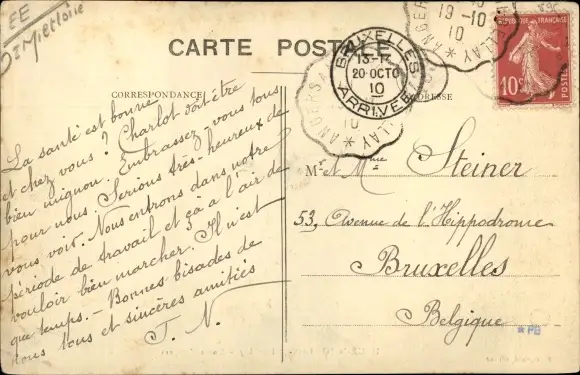 EE
CARTE POSTALE
CORRESPONDANCE
La santé est bonne
et chez vous ? Charlot doit être
bien mignon. Embrassez-vous tous
pour nous. Serions très-heureux de
vous voir. Nous entrons dans notre
période de travail et ça a l'air de
vouloir bien marcher. Il n'est
que temps. - Bonnes bisades de
nous tous et sincères amitiés
T. N.
BRUXELLES
20 OCTO
10
ARRIVEE
ANGERS A
19-10
10
ANGER
LAY
RÉPUBLIQUE FRANÇAISE
10c
Mr et Mme Steiner
53, Avenue de l'Hippodrome
Bruxelles
Belgique
*PB